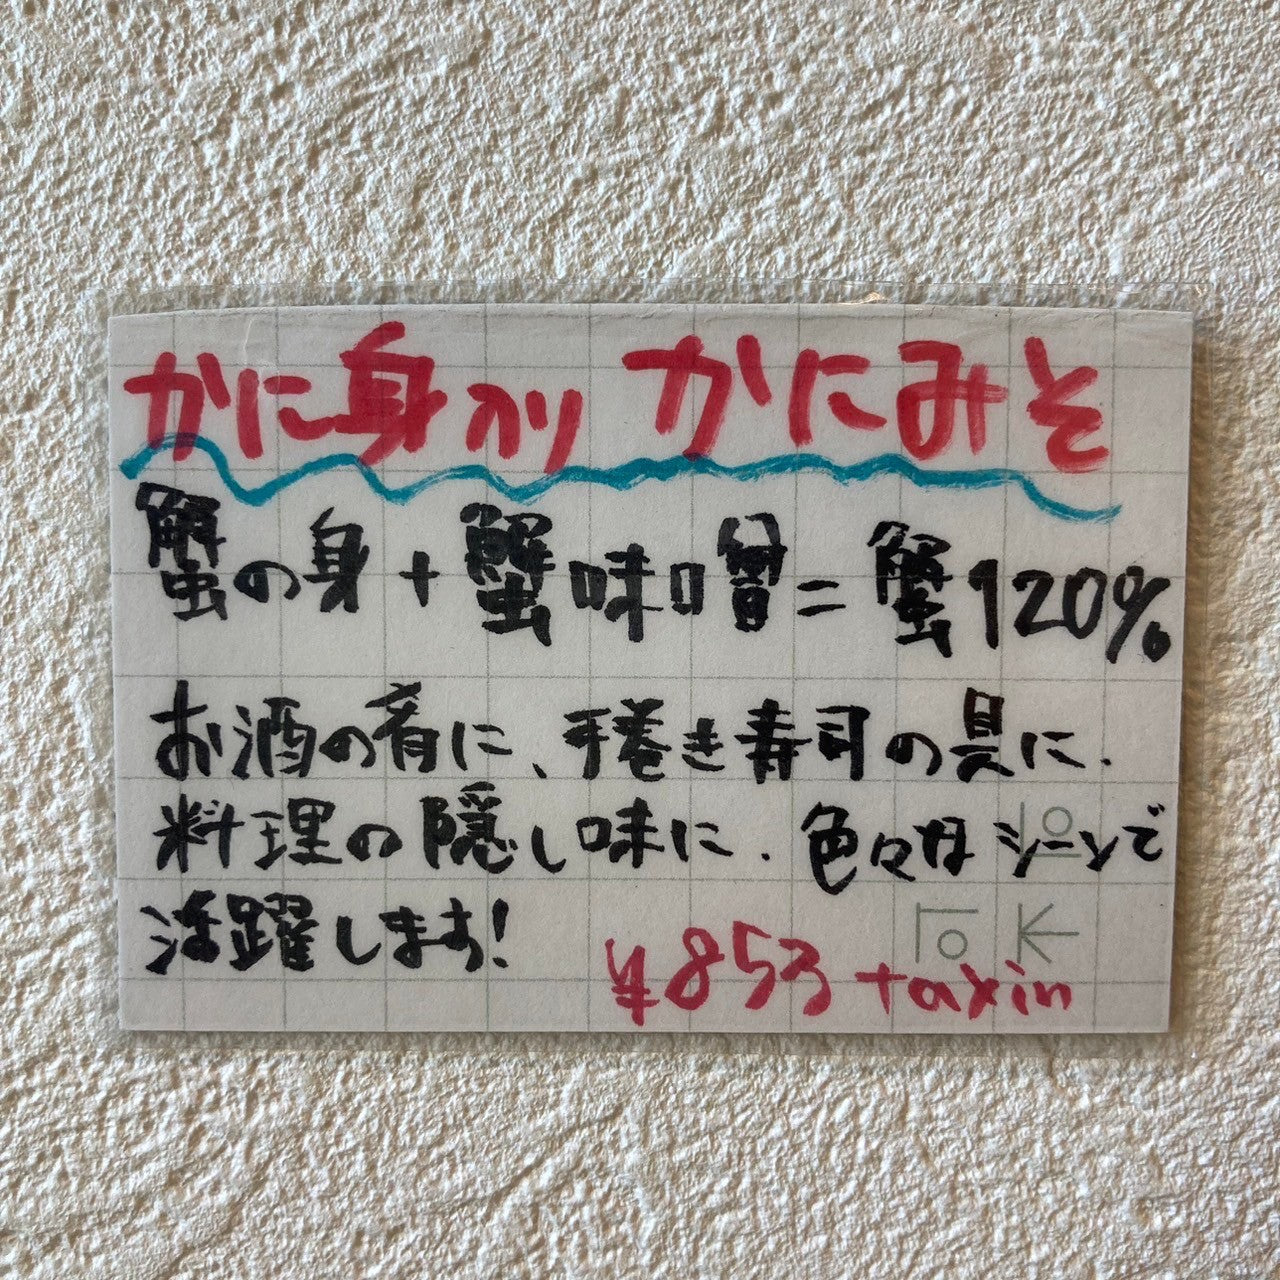 かに身入り かにみそ
蟹の身+蟹味噌=蟹120%
お酒の肴に、手巻き寿司の具に、
料理の隠し味に、色々なシーンで
活躍します!
¥853 taxin